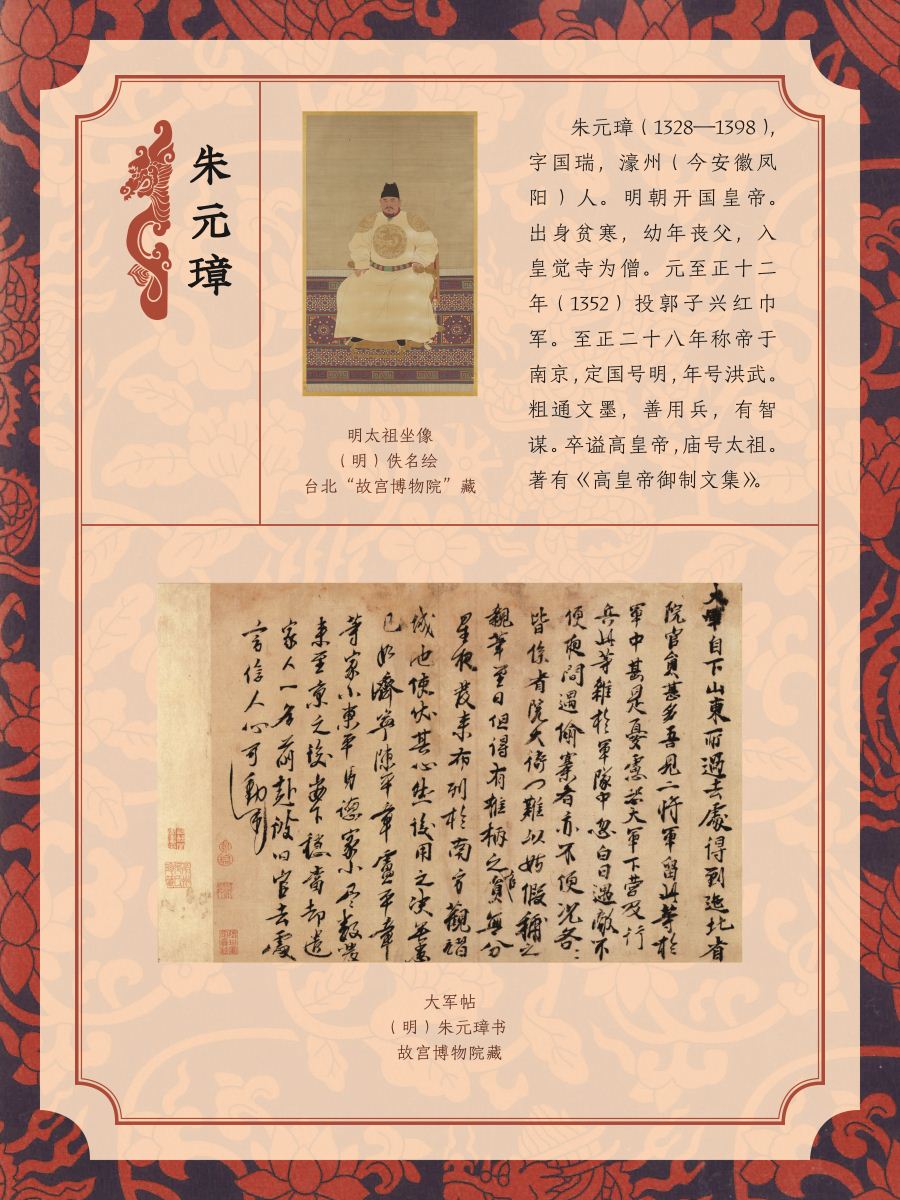 朱元璋
明太祖坐像
（明）佚名绘
台北“故宫博物院”藏
朱元璋（1328—1398），
字国瑞，濠州（今安徽凤
阳）人。明朝开国皇帝。
出身贫寒，幼年丧父，入
皇觉寺为僧。元至正十二
年（1352）投郭子兴红巾
军。至正二十八年称帝于
南京，定国号明，年号洪武。
粗通文墨，善用兵，有智
谋。卒谥高皇帝，庙号太祖。
著有《高皇帝御制文集》。
大軍自下山東所過去處得到迤北省
院官員甚多吾見二將軍留此等於
軍中甚是憂慮恐大軍下營及行
兵此等雜於軍隊中忽白日遇敵不
便夜間遇偷寨者亦不便況各
皆係省院大衙門難以姑假補之
親筆至日但得有椎柄之員無分
星夜發来布列於南方觀
城池使伏其心然後用之决無患
已如濟寧陳平章盧平章
等家小東平馬德家小盡數發
来至京之後安下穩當却遣
家人一名前赴彼旧官去處
言信人心可動
大军帖
（明）朱元璋书
故宫博物院藏